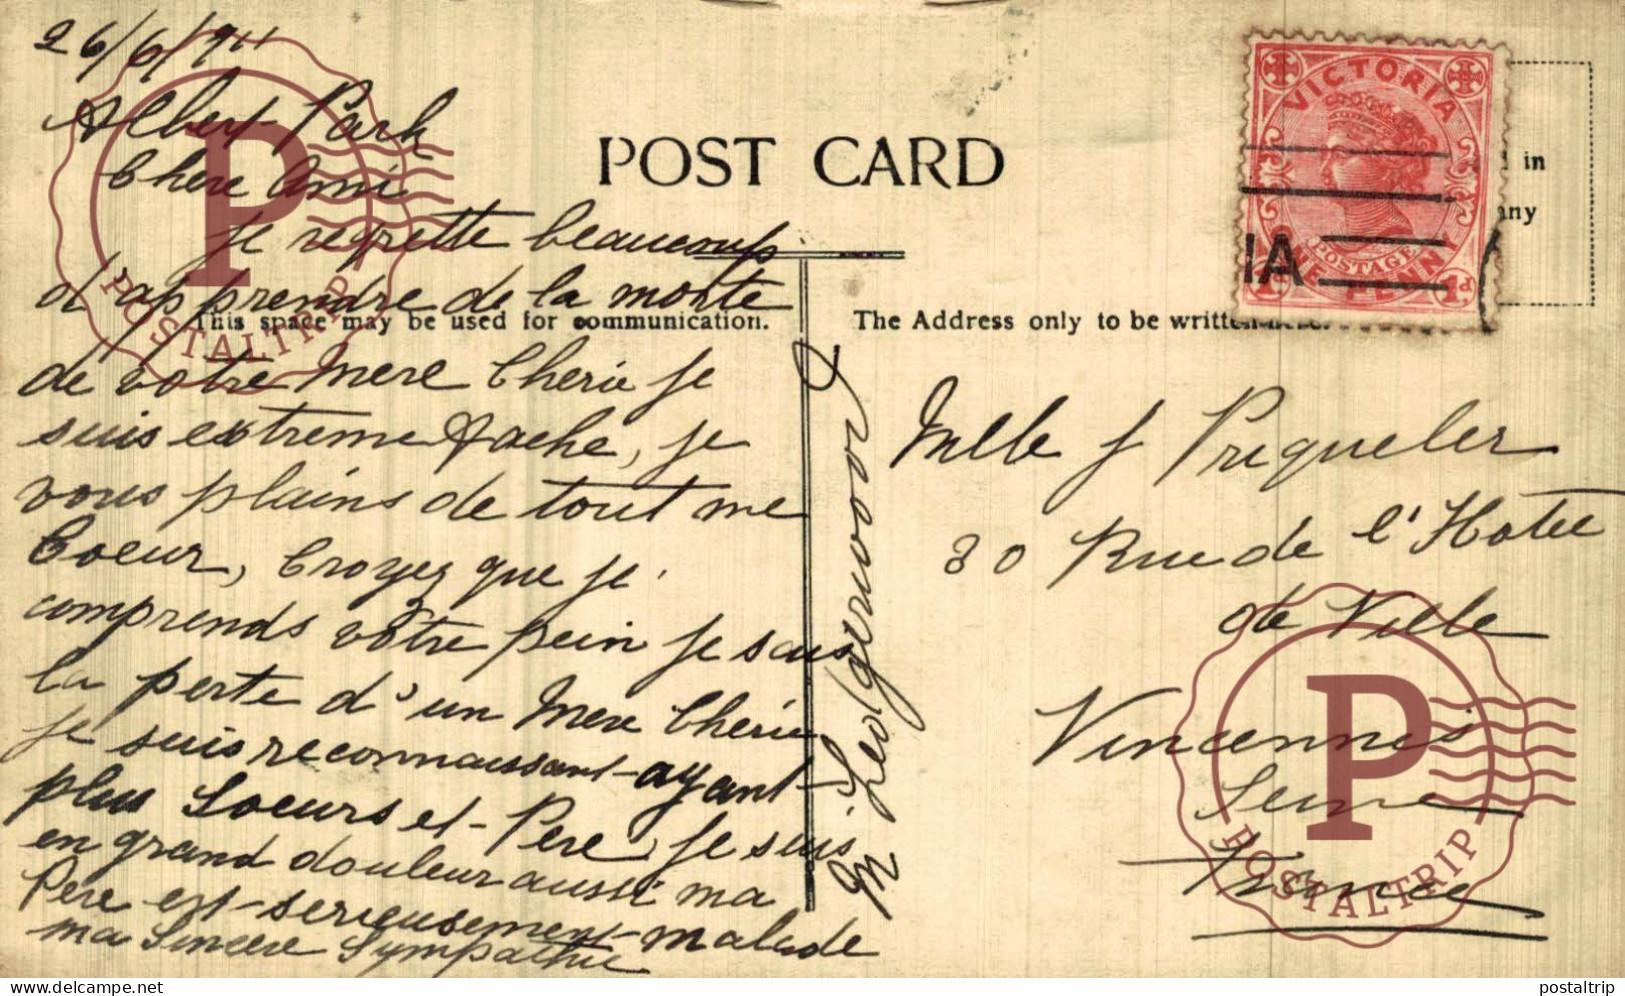 26/6/911
Albert Park
Chere Ami
Je regrette beaucoup
d'apprendre de la morte
de votre Mere Cherie je
suis extreme fache, je
vous plains de tout me
Coeur, Croyez que je
comprends vôtre pein je sais
la perte d'un Mere Cherie
je suis reconnaissant ayant
plus Soeurs et Pere, je suis
en grand douleur aussi ma
Pere est serieusement malade
ma Sincere Sympathie
M. Ledgerwood
POST CARD
This space may be used for communication.
The Address only to be written here.
in
any
VICTORIA
POSTAGE
ONE PENNY
1d
IA
Mlle J Priqueler
30 Rue de l'Hotel
de Ville
Vincennes
Seine
France
P
POSTALTRIP
P
POSTALTRIP
delcampe.net
postaltrip